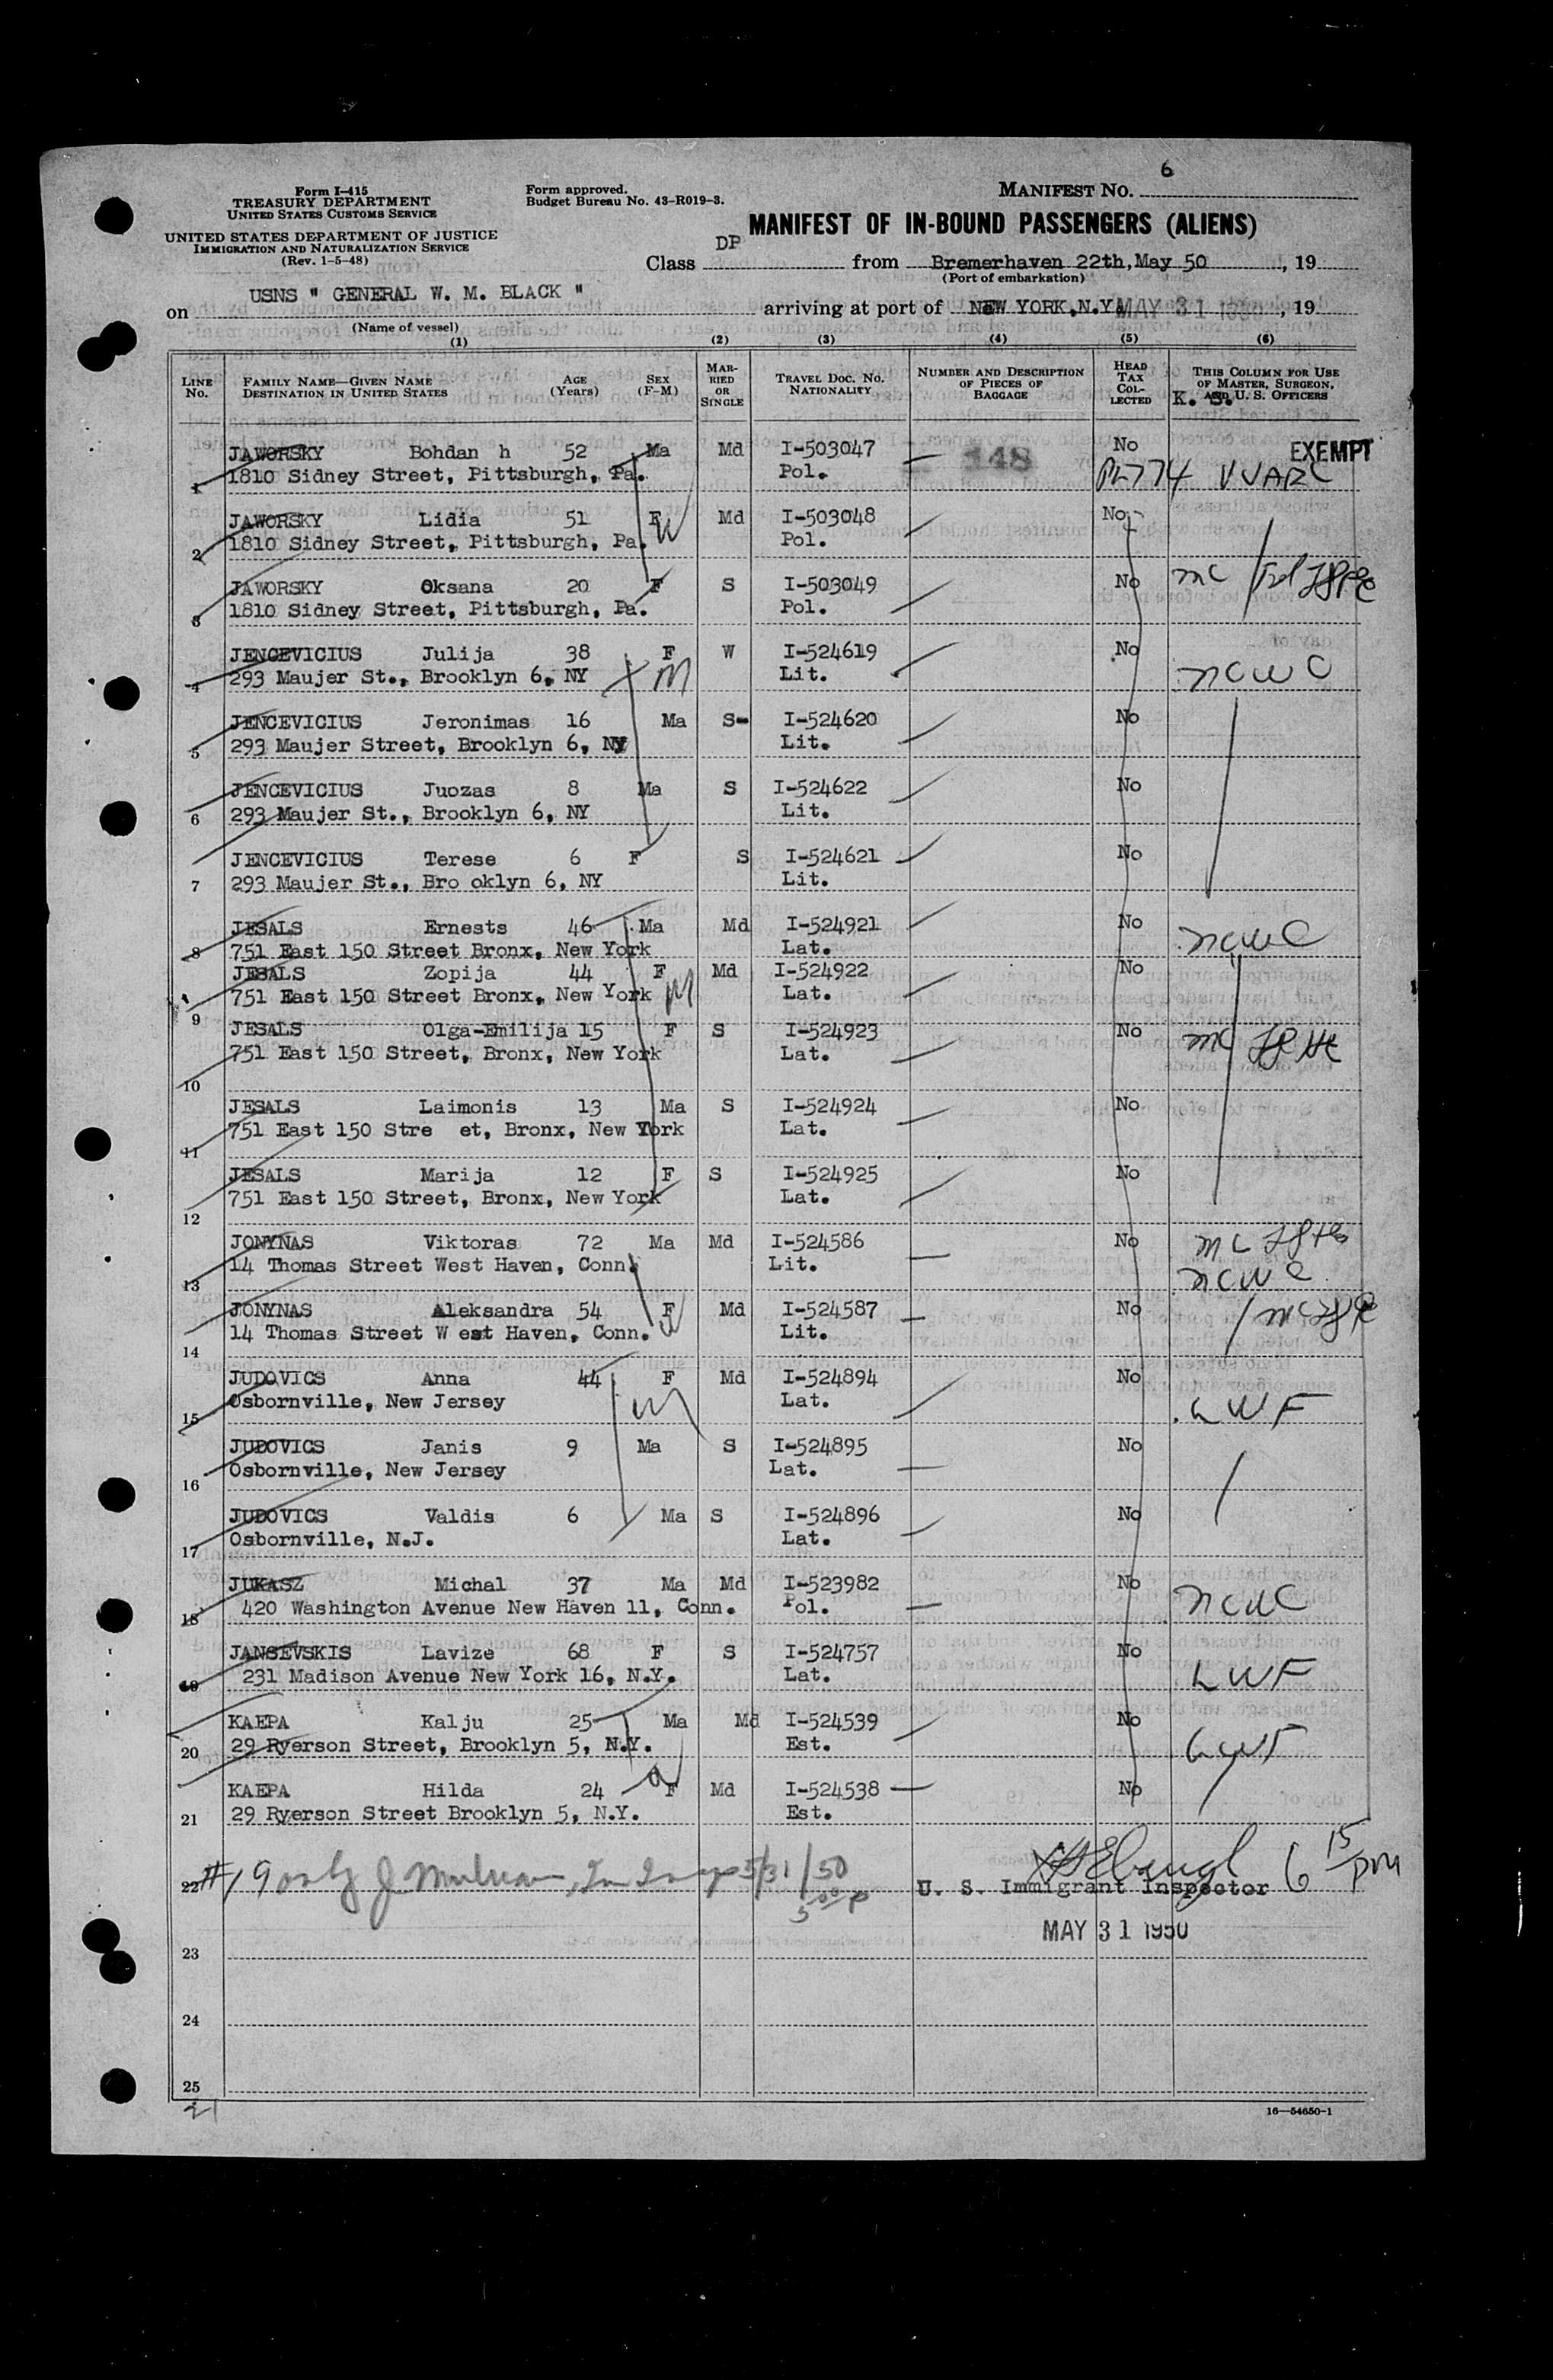 Form I-415
TREASURY DEPARTMENT
UNITED STATES CUSTOMS SERVICE
UNITED STATES DEPARTMENT OF JUSTICE
IMMIGRATION AND NATURALIZATION SERVICE
(Rev. 1-5-48)
Form approved.
Budget Bureau No. 43-R019-3.
MANIFEST NO. 6
MANIFEST OF IN-BOUND PASSENGERS (ALIENS)
Class DP from Bremerhaven 22th, May 50, 19
(Port of embarkation)
on USNS " GENERAL W. M. BLACK " arriving at port of NEW YORK, N.Y. MAY 31 1950, 19
(Name of vessel)
(1) (2) (3) (4) (5) (6)
LINE NO. FAMILY NAME—GIVEN NAME DESTINATION IN UNITED STATES AGE (Years) SEX (F-M) MARRIED OR SINGLE TRAVEL DOC. NO. NATIONALITY NUMBER AND DESCRIPTION OF PIECES OF BAGGAGE HEAD TAX COLLECTED THIS COLUMN FOR USE OF MASTER, SURGEON, AND U. S. OFFICERS
K. S.
JAWORSKY Bohdan h 52 Ma Md I-503047 148 No EXEMPT
1 1810 Sidney Street, Pittsburgh, Pa. Pol. PL774 VVARC
JAWORSKY Lidia 51 F W Md I-503048 No
2 1810 Sidney Street, Pittsburgh, Pa. Pol.
JAWORSKY Oksana 20 F S I-503049 No mc
3 1810 Sidney Street, Pittsburgh, Pa. Pol.
JENCEVICIUS Julija 38 F W I-524619 No
4 293 Maujer St., Brooklyn 6, NY M Lit. NCWC
JENCEVICIUS Jeronimas 16 Ma S- I-524620 No
5 293 Maujer Street, Brooklyn 6, NY Lit.
JENCEVICIUS Juozas 8 Ma S I-524622 No
6 293 Maujer St., Brooklyn 6, NY Lit.
JENCEVICIUS Terese 6 F S I-524621 No
7 293 Maujer St., Bro oklyn 6, NY Lit.
JESALS Ernests 46 Ma Md I-524921 No
8 751 East 150 Street Bronx, New York Lat. NCWC
JESALS Zopija 44 F Md I-524922 No
751 East 150 Street Bronx, New York M Lat.
9 JESALS Olga-Emilija 15 F S I-524923 No mc
751 East 150 Street, Bronx, New York Lat.
10
JESALS Laimonis 13 Ma S I-524924 No
11 751 East 150 Stre et, Bronx, New York Lat.
JESALS Marija 12 F S I-524925 No
751 East 150 Street, Bronx, New York Lat.
12
JONYNAS Viktoras 72 Ma Md I-524586 No mc
13 14 Thomas Street West Haven, Conn. Lit. NCWC
JONYNAS Aleksandra 54 F W Md I-524587 No mc
14 Thomas Street W est Haven, Conn. Lit.
14
JUDOVICS Anna 44 F Md I-524894 No
15 Osbornville, New Jersey M Lat. LWF
JUDOVICS Janis 9 Ma S I-524895 No
Osbornville, New Jersey Lat.
16
JUDOVICS Valdis 6 Ma S I-524896 No
17 Osbornville, N.J. Lat.
JUKASZ Michal 37 Ma Md I-523982 No
18 420 Washington Avenue New Haven 11, Conn. Pol. NCWC
JANSEVSKIS Lavize 68 F S I-524757 No
19 231 Madison Avenue New York 16, N.Y. Lat. LWF
KAEPA Kalju 25 Ma Md I-524539 No
20 29 Ryerson Street, Brooklyn 5, N.Y. Est. LWF
KAEPA Hilda 24 F Md I-524538 No
21 29 Ryerson Street Brooklyn 5, N.Y. Est.
22 #19 only 5/31/50
5 00 p
U. S. Immigrant Inspector 6 15 pm
MAY 31 1950
23
24
25
21
16—54650-1